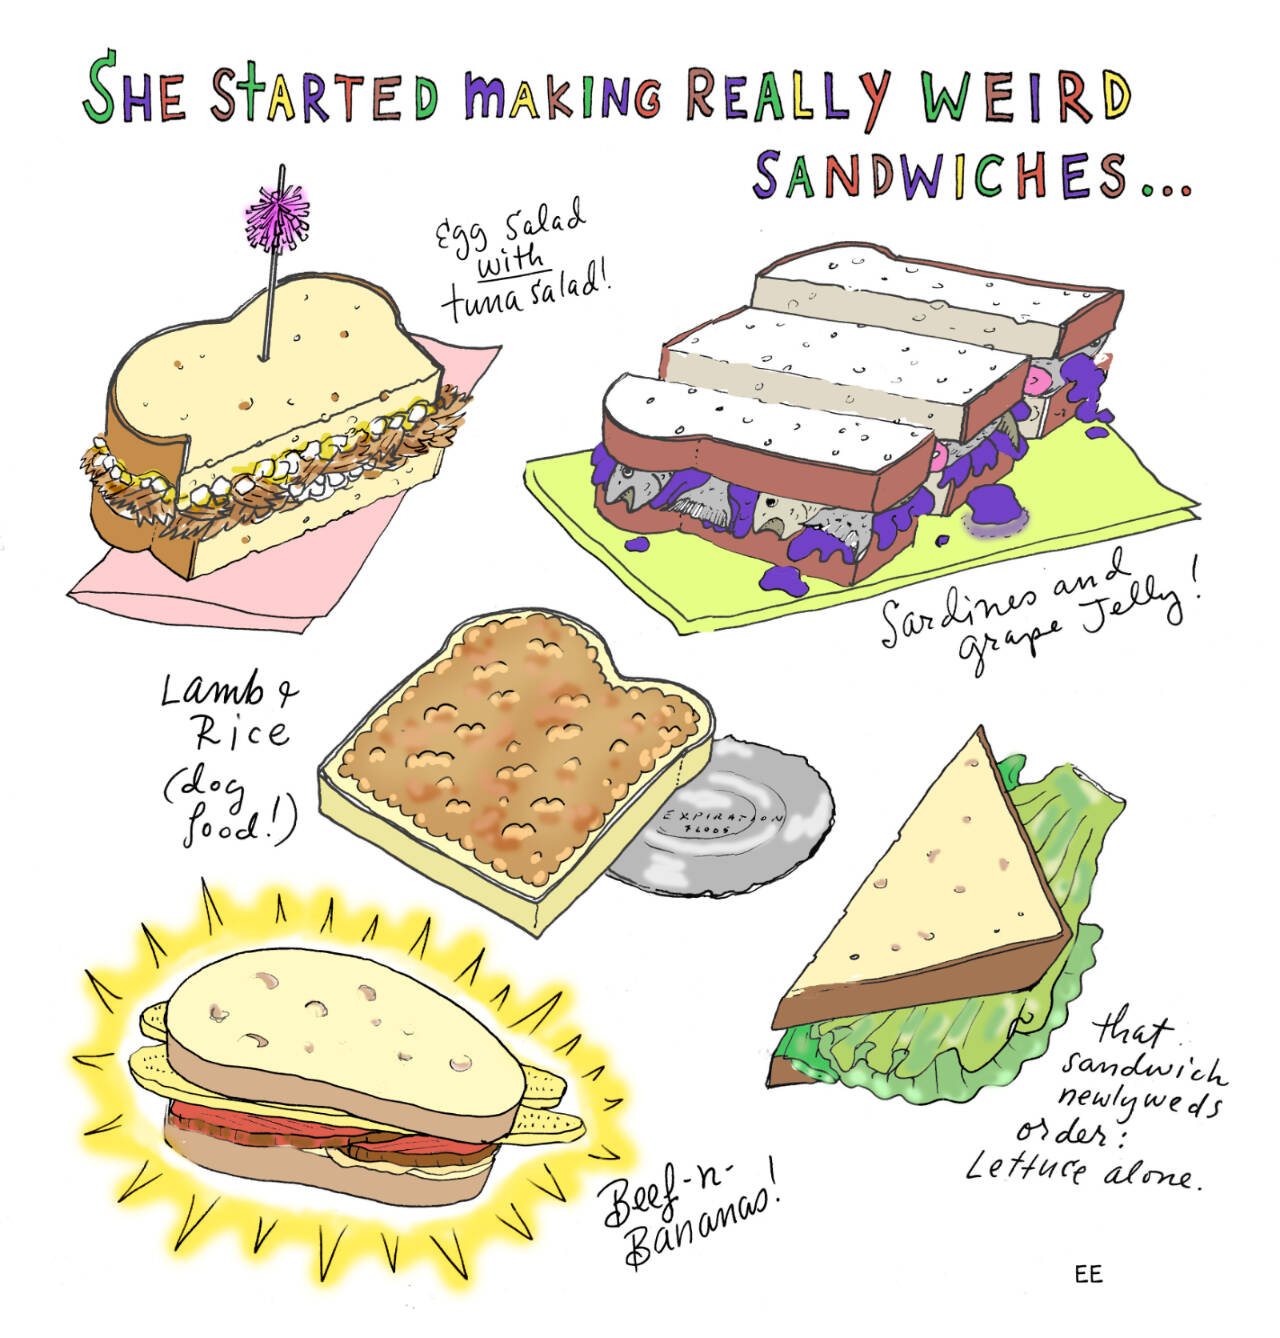 SHE STARTED MAKING REALLY WEIRD
SANDWICHES...
Egg Salad
with
tuna salad!
Sardines and
grape Jelly!
Lamb &
Rice
(dog
food!)
EXPIRATION
FLOOS
that
sandwich
newlyweds
order:
Lettuce alone.
Beef-n-
Bananas!
EE